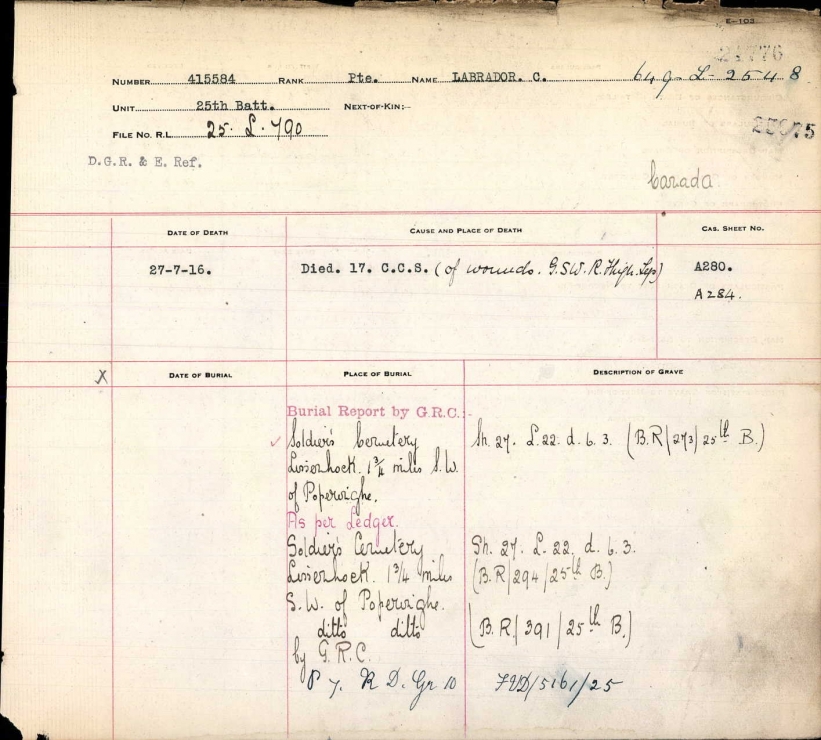 E-103
NUMBER 415584 RANK Pte. NAME LABRADOR. C. 649-L-2548
UNIT 25th Batt. NEXT-OF-KIN:-
FILE NO. R.L. 25. L. 790
D.G.R. & E. Ref.
Canada
DATE OF DEATH CAUSE AND PLACE OF DEATH CAS. SHEET NO.
27-7-16. Died. 17. C.C.S. (of wounds. G.S.W. R. Thigh. Legs) A280.
A284.
X DATE OF BURIAL PLACE OF BURIAL DESCRIPTION OF GRAVE
Burial Report by G.R.C.:-
Soldier's Cemetery Sh. 27. L.22. d. 6. 3. (B.R/273/25th B.)
Lissenhock. 1 3/4 miles S.W.
of Poperinghe.
As per Ledger.
Soldier's Cemetery Sh. 27. L. 22. d. 6. 3.
Lissenhock. 1 3/4 miles (B.R/294/25th B.)
S.W. of Poperinghe.
ditto ditto (B.R/391/25th B.)
by G.R.C.
P 7. R D. Gr 10 /5161/25